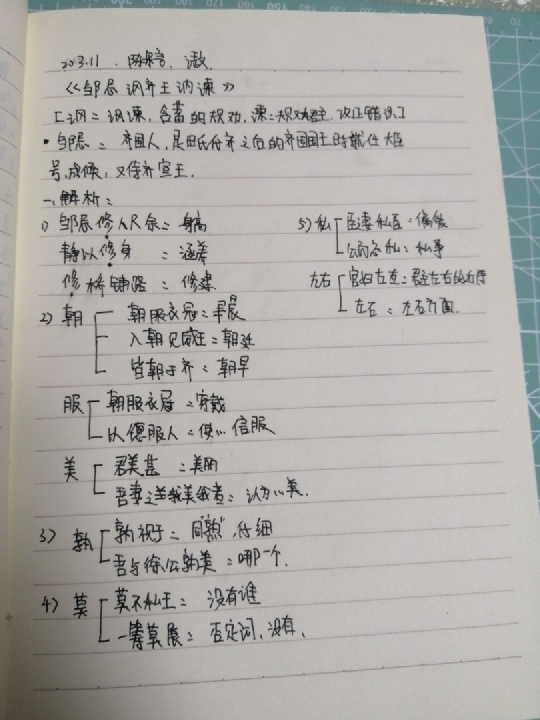 《邹忌讽齐王纳谏》
[讽=讽谏,含蓄的规劝,谏=规劝君主,改正错误]
·邹忌=齐国人,
号成侯,又侍齐宣王.
一、解析:
1) 邹忌修八尺余=身高
静以修身 = 涵养
修桥铺路 = 修建
2) 朝 朝服衣冠=早晨
入朝见威王=朝廷
皆朝于齐=朝
服 朝服衣冠=穿戴
以德服人=使…信服
美 君美甚 =美丽
吾妻之美我者= 认为…美.
3) 孰 孰视之=同“熟”,仔细
吾与徐公孰美=哪一个.
4) 莫 莫不私王= 没有谁
一筹莫展= 否定词,没有.
5) 私 臣妻私臣=偏爱
私=私事
左右 宫妇左右=
左右=左右方面.